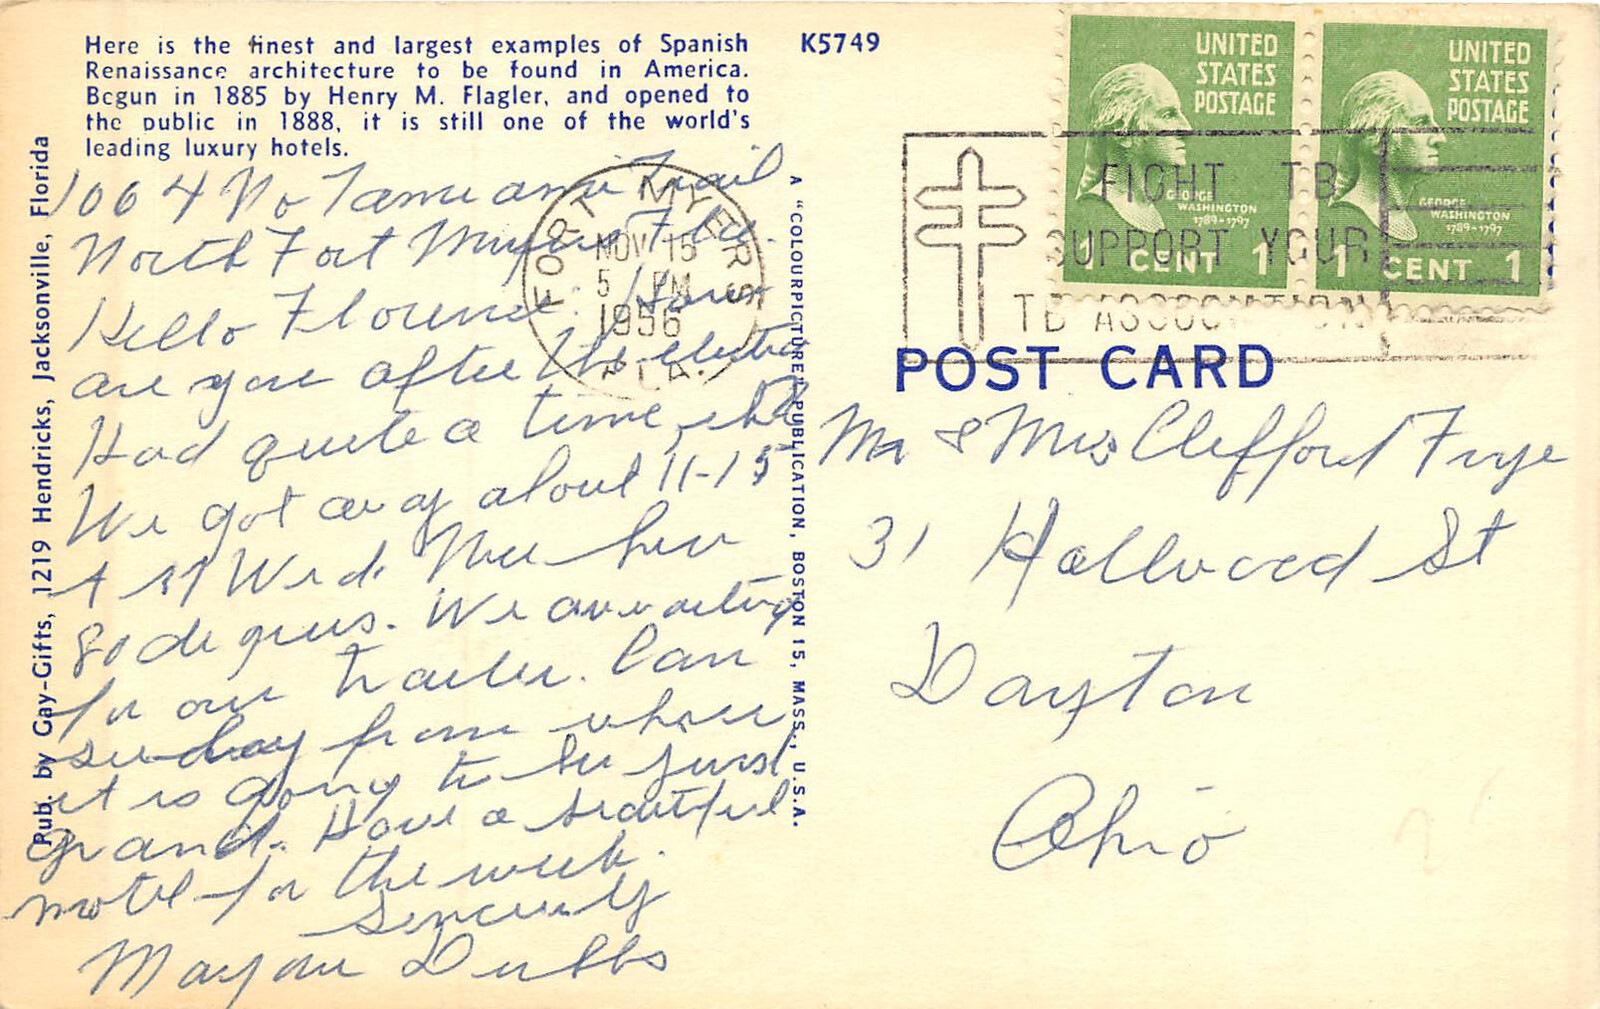 Here is the finest and largest examples of Spanish
Renaissance architecture to be found in America.
Begun in 1885 by Henry M. Flagler, and opened to
the public in 1888, it is still one of the world's
leading luxury hotels.
K5749
Pub. by Gay-Gifts, 1219 Hendricks, Jacksonville, Florida
1064 No Tamiami Trail
North Fort Myers Fla.
Hello Florence. How
are you after the election
Had quite a time, eh?
We got away about 11-15
A M Wed. Nice here
80 degrees. We are waiting
for our trailer. Can
see bay from where
it is going to be just
grand. Have a beautiful
motel for the week.
Sincerely
Dubbs
A "COLOURPICTURE" PUBLICATION, BOSTON 15, MASS., U.S.A.
FORT MYERS
NOV 15
5 PM
1956
FLA.
FIGHT TB
SUPPORT YOUR
TB ASSOCIATION
UNITED
STATES
POSTAGE
GEORGE
WASHINGTON
1789-1797
1 CENT 1
UNITED
STATES
POSTAGE
GEORGE
WASHINGTON
1789-1797
1 CENT 1
POST CARD
Mr & Mrs Clifford Frye
31 Hollwood St
Dayton
Ohio